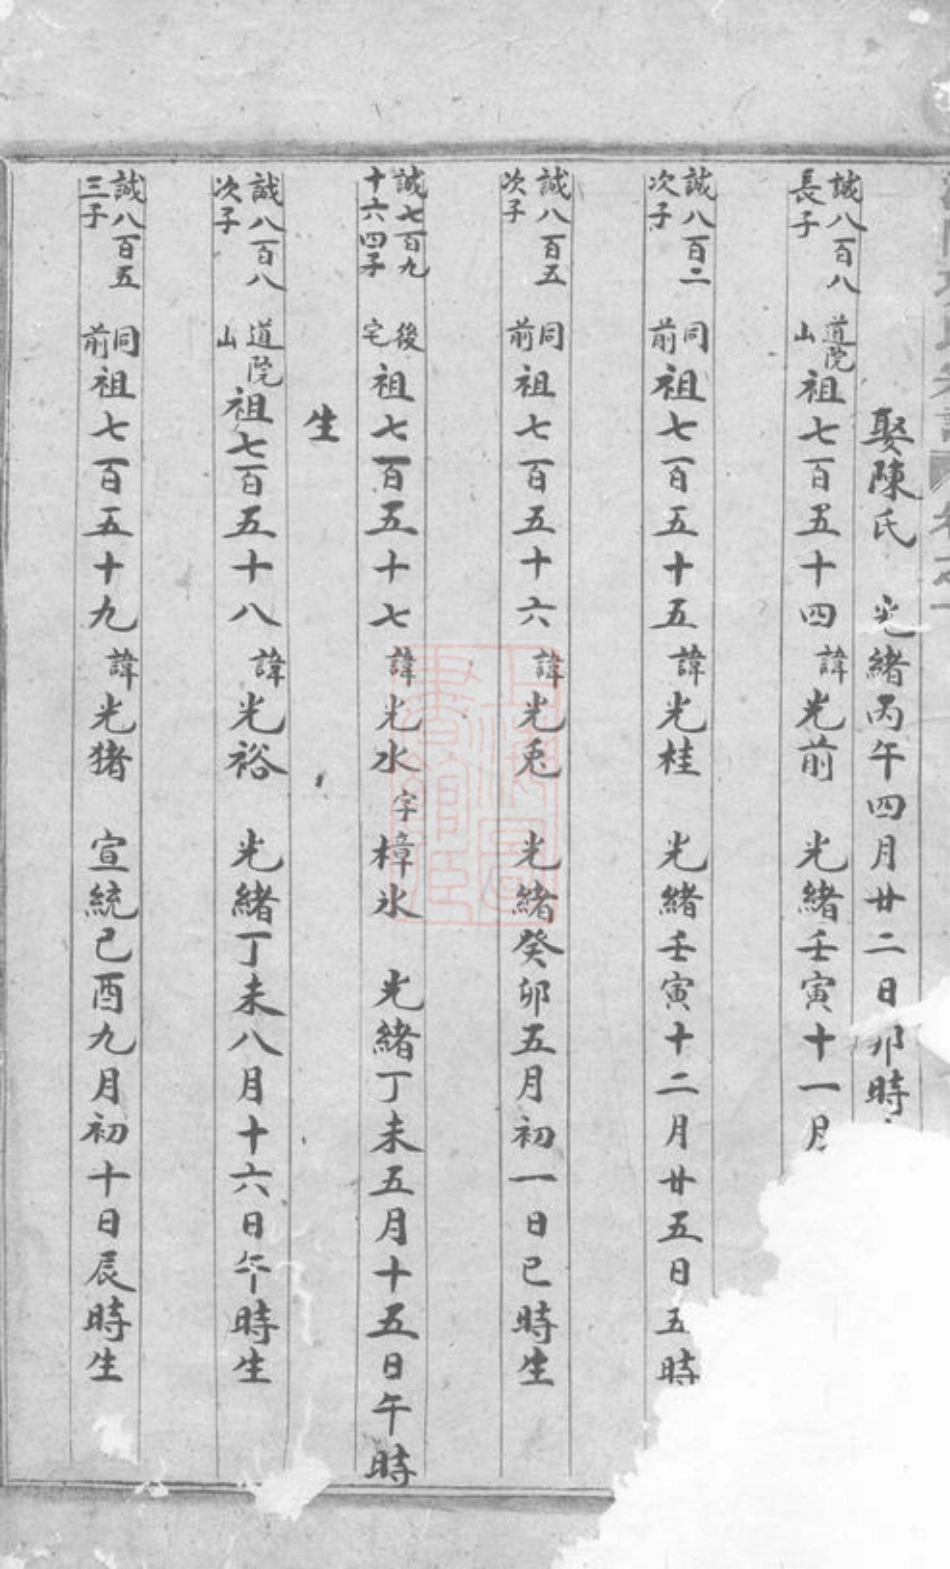 娶陳氏 光緒丙午四月廿二日卯時
誠八百八長子 道院山 祖七百五十四 諱光前 光緒壬寅十一月
誠八百二次子 同前 祖七百五十五 諱光桂 光緒壬寅十二月廿五日五時
誠八百五次子 同前 祖七百五十六 諱光兎 光緒癸卯五月初一日巳時生
誠七百九十六四子 後宅 祖七百五十七 諱光水 字樟氷 光緒丁未五月十五日午時
生
誠八百八次子 道院山 祖七百五十八 諱光裕 光緒丁未八月十六日午時生
誠八百五三子 同前 祖七百五十九 諱光猪 宣統己酉九月初十日辰時生